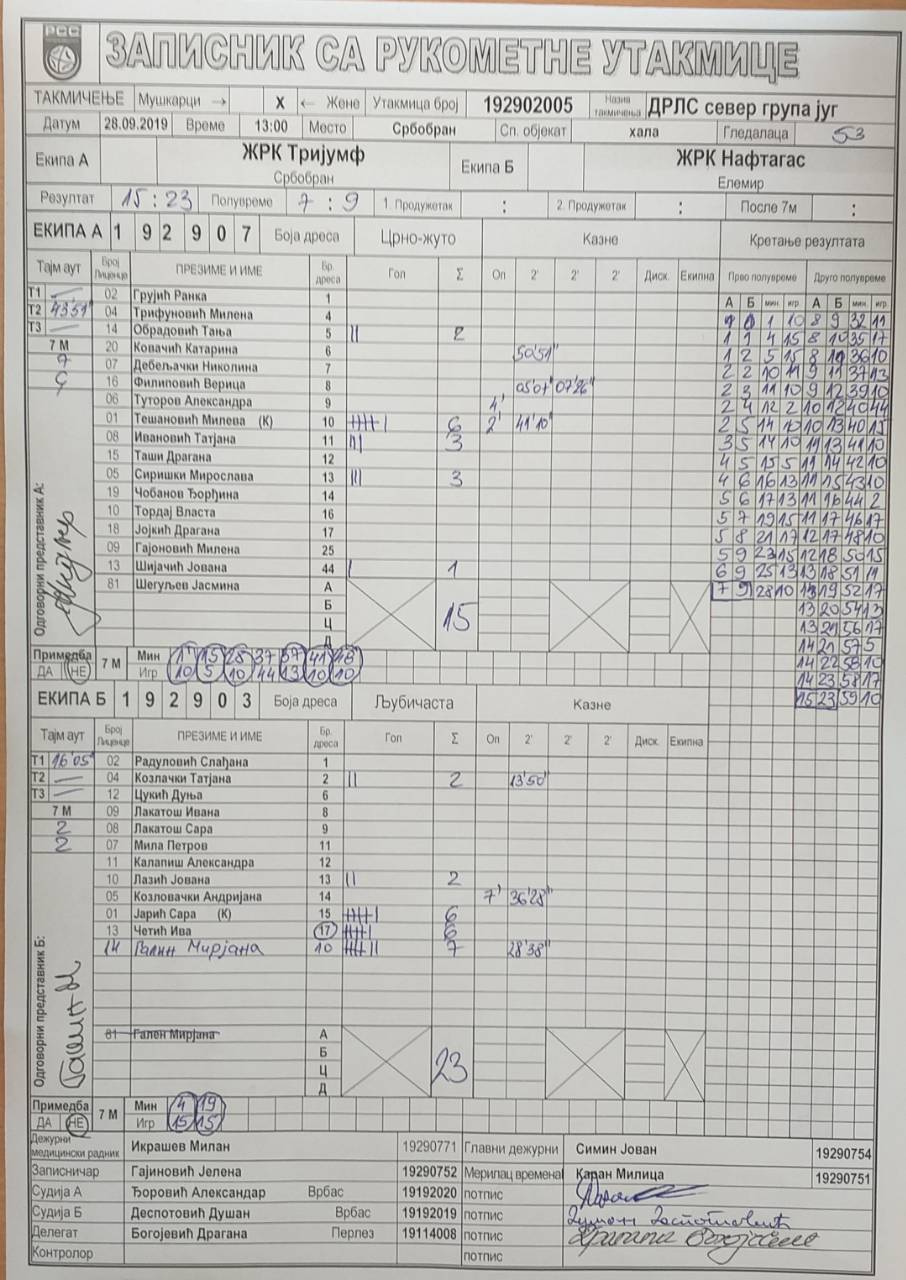 РСС
ЗАПИСНИК СА РУКОМЕТНЕ УТАКМИЦЕ
ТАКМИЧЕЊЕ Мушкарци → X ← Жене Утакмица број 192902005 Назив такмичења ДРЛС север група југ
Датум 28.09.2019 Време 13:00 Место Србобран Сп. објекат хала Гледалаца 53
Екипа А ЖРК Тријумф Србобран Екипа Б ЖРК Нафтагас Елемир
Резултат 15 : 23 Полувреме 7 : 9 1. Продужетак : 2. Продужетак : После 7м :
ЕКИПА А 1 9 2 9 0 7 Боја дреса Црно-жуто Казне Кретање резултата
Тајм аут Број Лиценце ПРЕЗИМЕ И ИМЕ Бр. дреса Гол Σ Оп 2' 2' 2' Диск. Екипна Прво полувреме Друго полувреме
А Б мин. игр. А Б мин. игр.
Т1 — 02 Грујић Ранка 1
Т2 43'51" 04 Трифуновић Милена 4
Т3 — 14 Обрадовић Тања 5 || 2
7 М 20 Ковачић Катарина 6 50'51"
7 07 Дебељачки Николина 7
16 Филиповић Верица 8 05'01" 07'26"
06 Туторов Александра 9 4'
01 Тешановић Милева (К) 10 6 2' 41'10"
08 Ивановић Татјана 11 3
15 Таши Драгана 12
05 Сиришки Мирослава 13 ||| 3
19 Чобанов Ђорђина 14
10 Тордај Власта 16
18 Јојкић Драгана 17
09 Гајоновић Милена 25
13 Шијачић Јована 44 | 1
81 Шегуљев Јасмина А
Б
Ц
Д
15
Одговорни представник А:
8 9 32 11
1 1 4 15 8 10 35 17
1 2 5 15
2 2 10 11 9 11 37 13
2 3 11 10 9 12 39 10
2 4 12 2 10 12 40 44
2 5 14 10 10 13 40 15
3 5 14 10 11 13 41 10
4 5 15 5 11 14 42 10
4 6 16 13 11 15 43 10
5 6 17 13 11 16 44 2
5 7 19 15 11 17 46 17
5 8 21 17 12 17 48 10
5 9 23 15 12 18 50 15
6 9 25 13 13 18 51 11
7 9 28 10 13 19 52 17
13 20 54 13
13 21 56 17
14 21 57 5
14 22 58 10
14 23 58 17
15 23 59 10
Примедба ДА НЕ 7 М Мин 1' 15 28 37 37 41 43'
Игр 10 5 10 44 13 10 10
ЕКИПА Б 1 9 2 9 0 3 Боја дреса Љубичаста Казне
Тајм аут Број Лиценце ПРЕЗИМЕ И ИМЕ Бр. дреса Гол Σ Оп 2' 2' 2' Диск. Екипна
Т1 16'05" 02 Радуловић Слађана 1
Т2 — 04 Козлачки Татјана 2 || 2 13'50"
Т3 — 12 Цукић Дуња 6
7 М 09 Лакатош Ивана 8
2 08 Лакатош Сара 9
2 07 Мила Петров 11
11 Калапиш Александра 12
10 Лазић Јована 13 || 2
05 Козловачки Андријана 14 7' 36'28"
01 Јарић Сара (К) 15 6
13 Четић Ива 17 6
14 Галин Мирјана 10 7 28'38"
81 Гален Мирјана А
Б
Ц
Д
23
Одговорни представник Б:
Примедба ДА НЕ 7 М Мин 4 19
Игр 15 15
Дежурни медицински радник Икрашев Милан 19290771 Главни дежурни Симин Јован 19290754
Записничар Гајиновић Јелена 19290752 Мерилац времена Каран Милица 19290751
Судија А Ђоровић Александар Врбас 19192020 потпис
Судија Б Деспотовић Душан Врбас 19192019 потпис Душан Деспотовић
Делегат Богојевић Драгана Перлез 19114008 потпис Драгана Богојевић
Контролор потпис